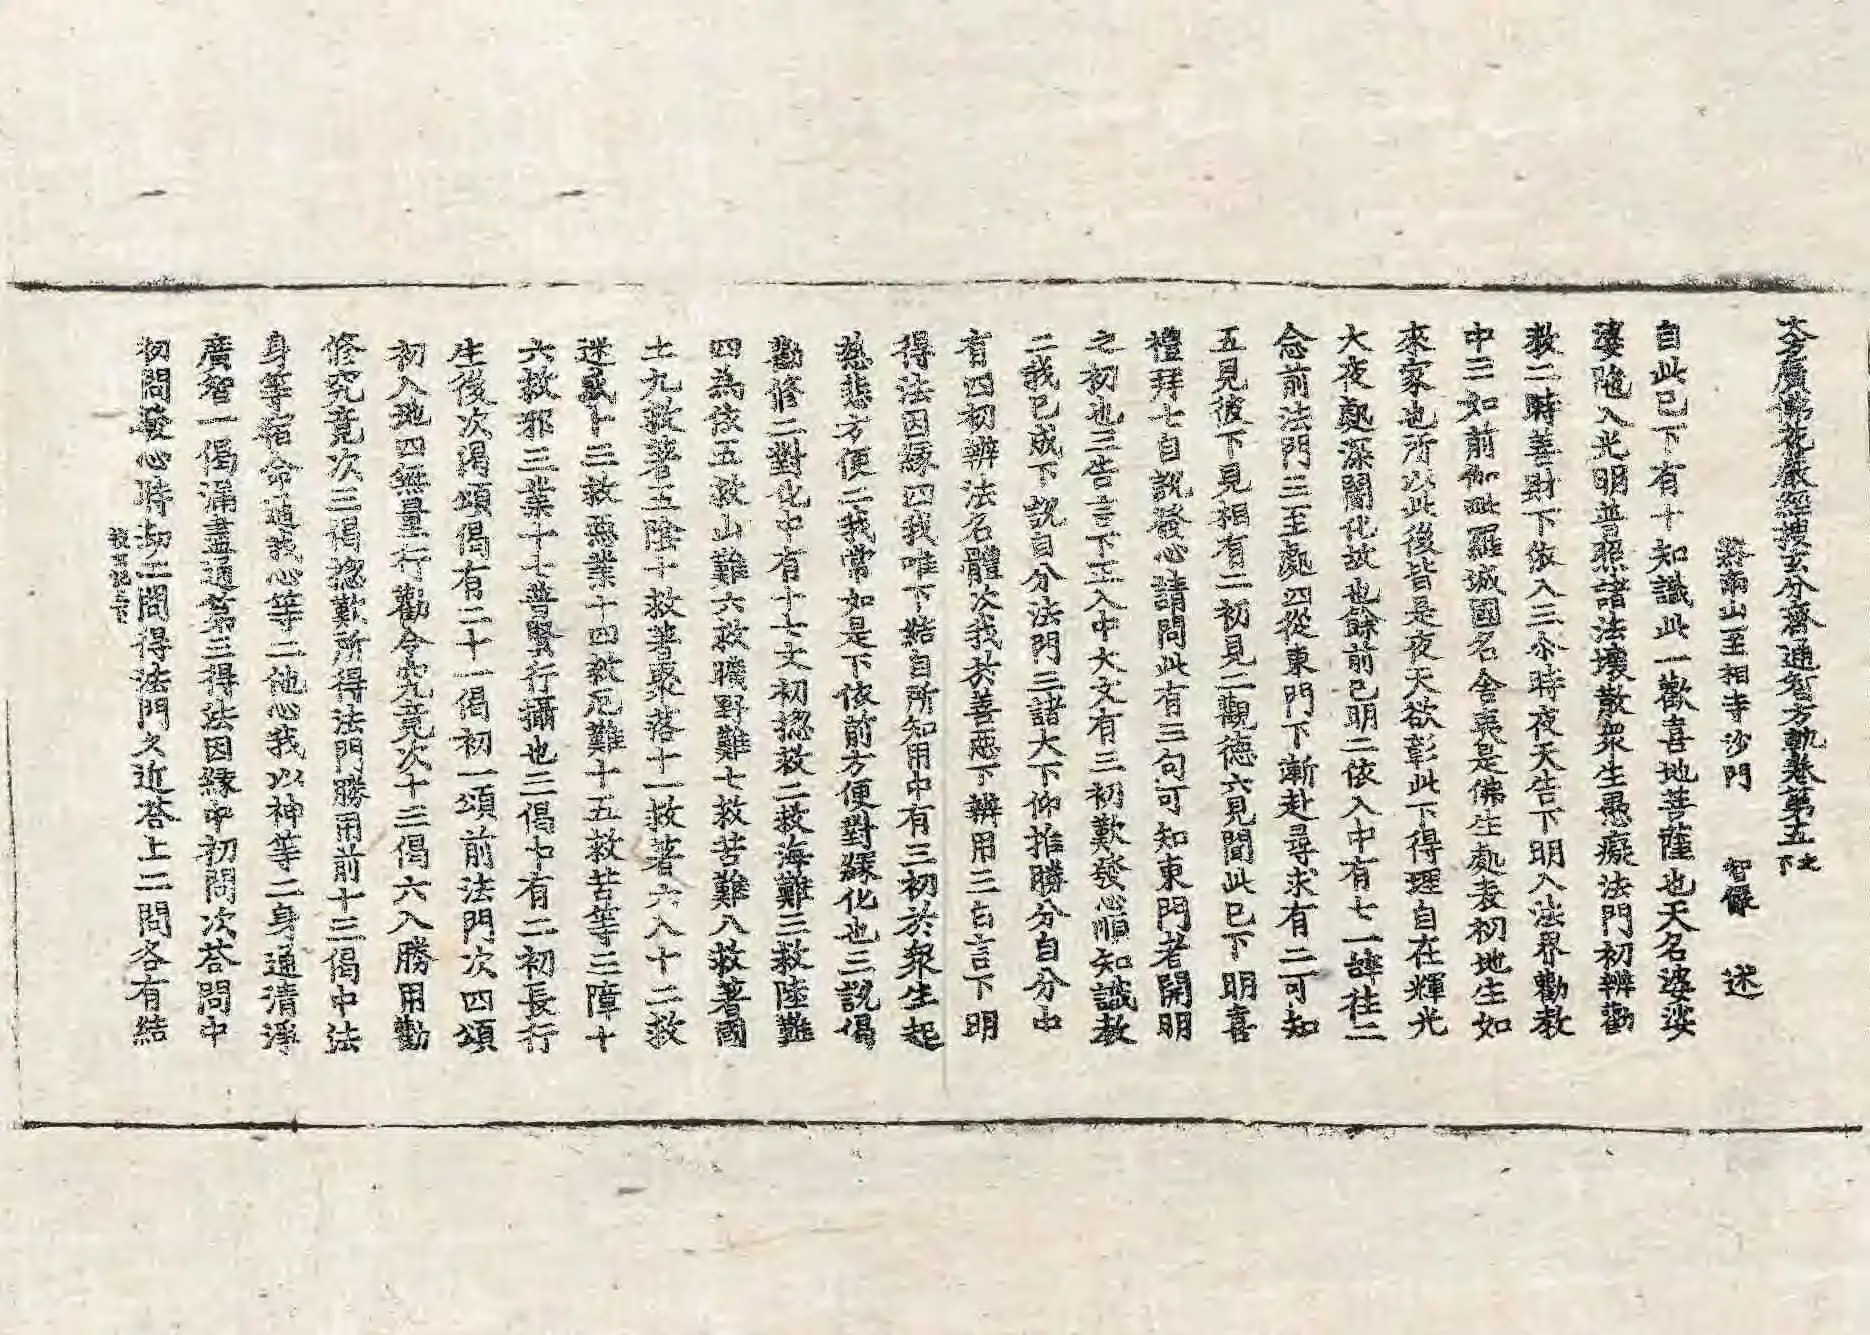 大方廣佛花嚴經搜玄分齊通智方軌卷第五之下
終南山至相寺沙門 智儼 述
自此已下有十知識此一歡喜地菩薩也天名婆娑
婆陁入光明普照諸法壞散衆生愚癡法門初辨勸
教二時善財下依入三尒時夜天告下明入法界勸教
中三如前伽毗羅城國名舍夷是佛生處表初地生如
來家也所以此後皆是夜天欲彰此下得理自在輝光
大夜起深闇化故也餘前已明二依入中有七一辞往二
念前法門三至處四從東門下漸赴尋求有二可知
五見彼下見相有二初見二觀德六見聞此已下明喜
禮拜七自說發心請問此有三句可知東門者開明
之初也三告言下正入中大文有三初歎發心順知識教
二我已成下說自分法門三諸大下仰推勝分自分中
有四初辨法名體次我於善惡下辨用三白言下明
得法因緣四我唯下結自所知用中有三初於衆生起
慈悲方便二我常如是下依前方便對緣化也三說偈
勸修二對化中有十七文初揔救二救海難三救陸難
四為依五救山難六救曠野難七救苦難八救著國
土九救著五陰十救著聚落十一救著六入十二救
迷惑十三救無業十四救厄難十五救苦等三障十
六救邪三業十七普賢行攝也三偈中有二初長行
生後次濁頌偈有二十一偈初一頌前法門次四頌
初入地四無量行勸令究竟次十三偈六入勝用勸
修究竟次三偈揔歎所得法門勝用前十三偈中法
身等宿命通我心等二他心我以神等二身通清淨
廣智一偈漏盡通第三得法因緣中初問次荅問中
初問發心時劫二問得法門久近荅上二問各有結